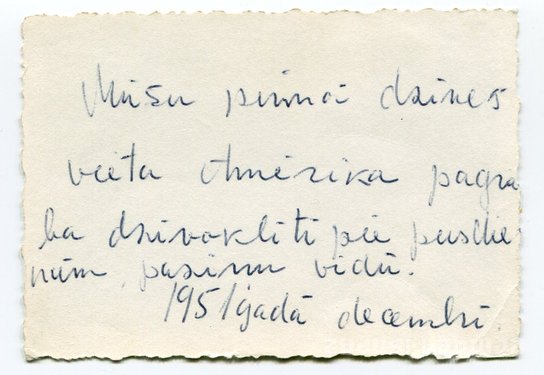 Mūsu pirmā dzīves
vieta Amērika pagra
ba dzivoklīti pie
num, pašinu vidū.
1951 gadā decembrī.